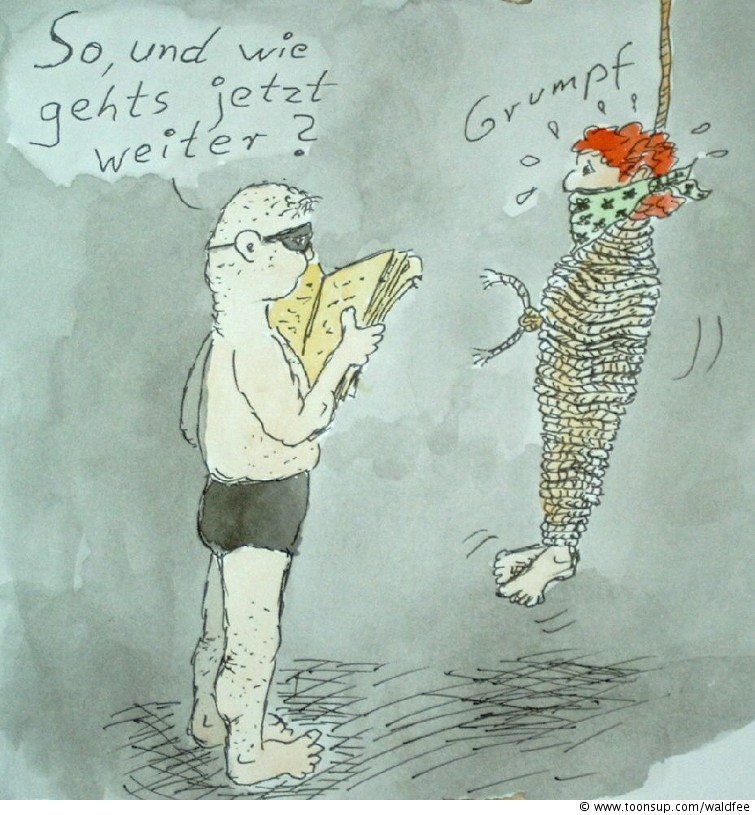 So, und wie
gehts jetzt
weiter?
Grumpf
© www.toonsup.com/waldfee